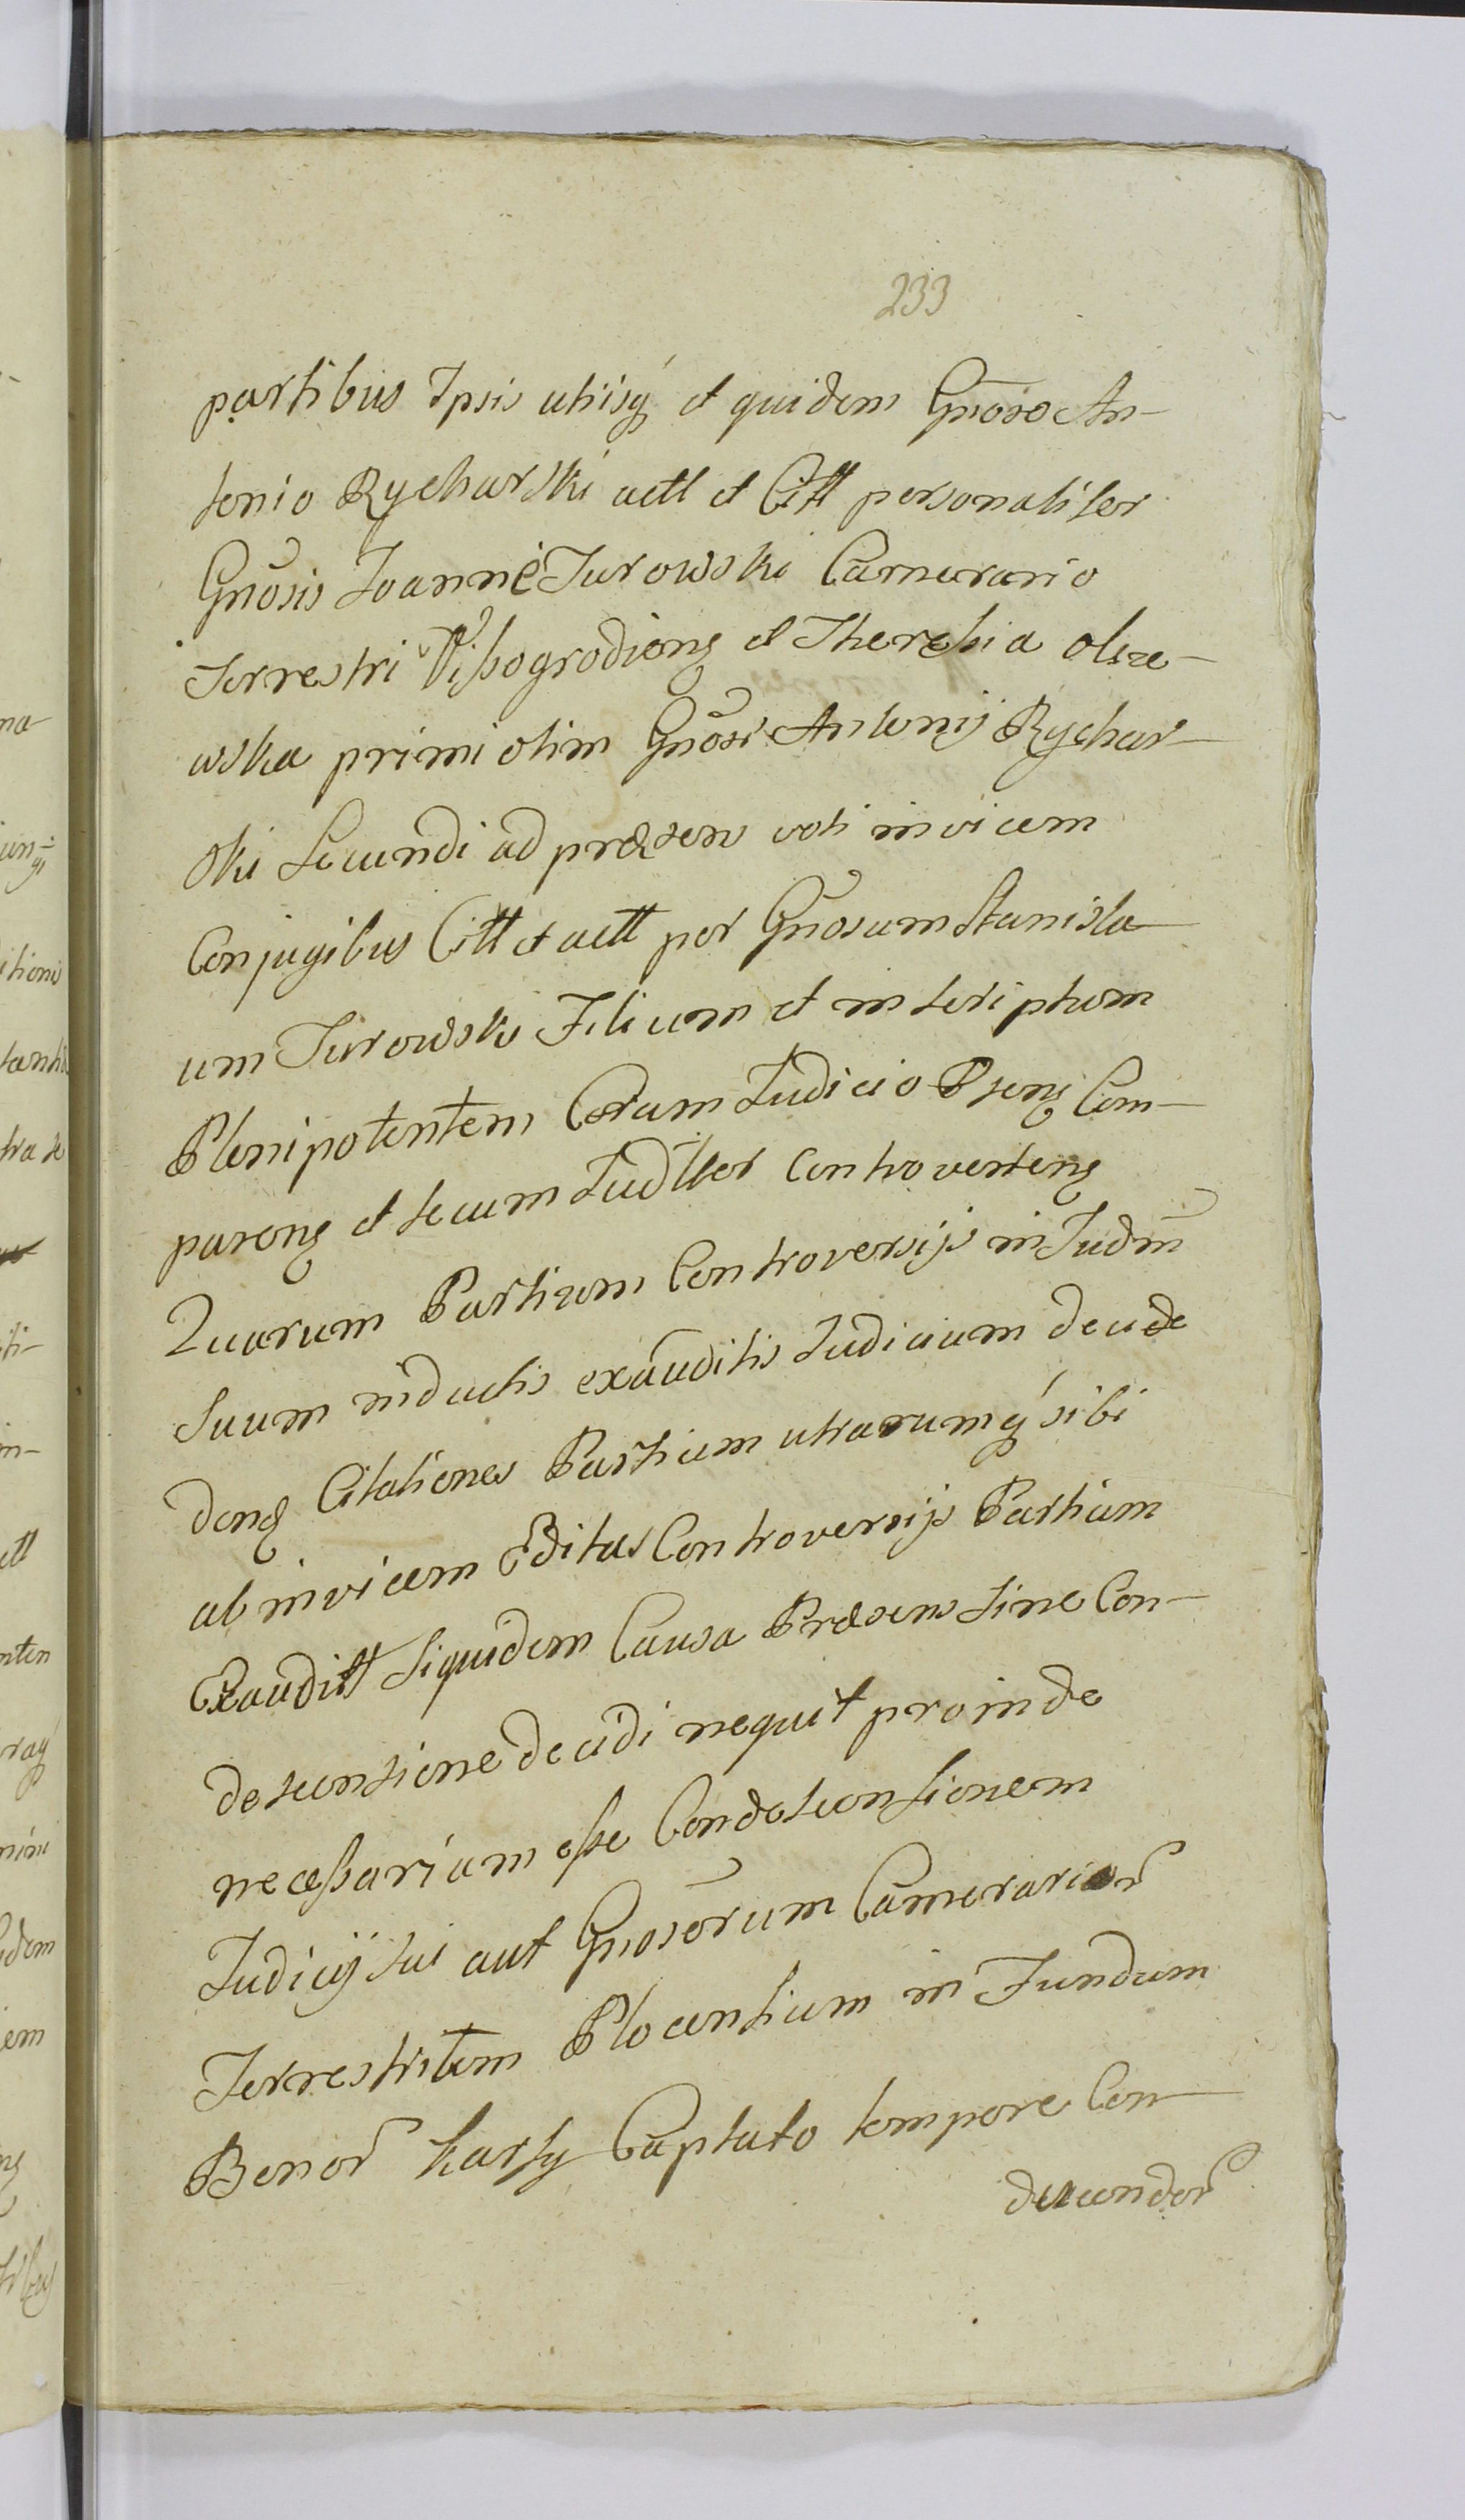 233
partibus Ipsis utrisq́ et quidem Gnõso An-
tonio Rycharski actt et Citt personaliter
Gnõsis Joanne Turowski Camerario
Terrestri Vissogrodiens et Theressia olsze-
wska primi olim Gnõsi Antonij Rychar-
ski Secundi ad præsens voti invicem
Conjugibus Citt et actt per Gnõsum Stanisla
um Turowski Filium et inscriptum
Plenipotentem Coram Judicio Pseng Com-
pareng et secum Judłter Controverteng
Quarum Partium Controversijs in Judm̃
Suum inductis exauditis Judicium decide
dong Citationes Partium utrarumq́ sibi
ab invicem Editas Controversijs Partium
Exauditt Siquidem Causa Præsens Sine Con-
descensione decidi nequit proinde
necessarium esse Condescensionem
Judicij sui aut Gnosõrum Camerarior̃
Terrestrium Plocensium in Fundum
Bonor̃ Karsy Captato tempore Con
descendor̃